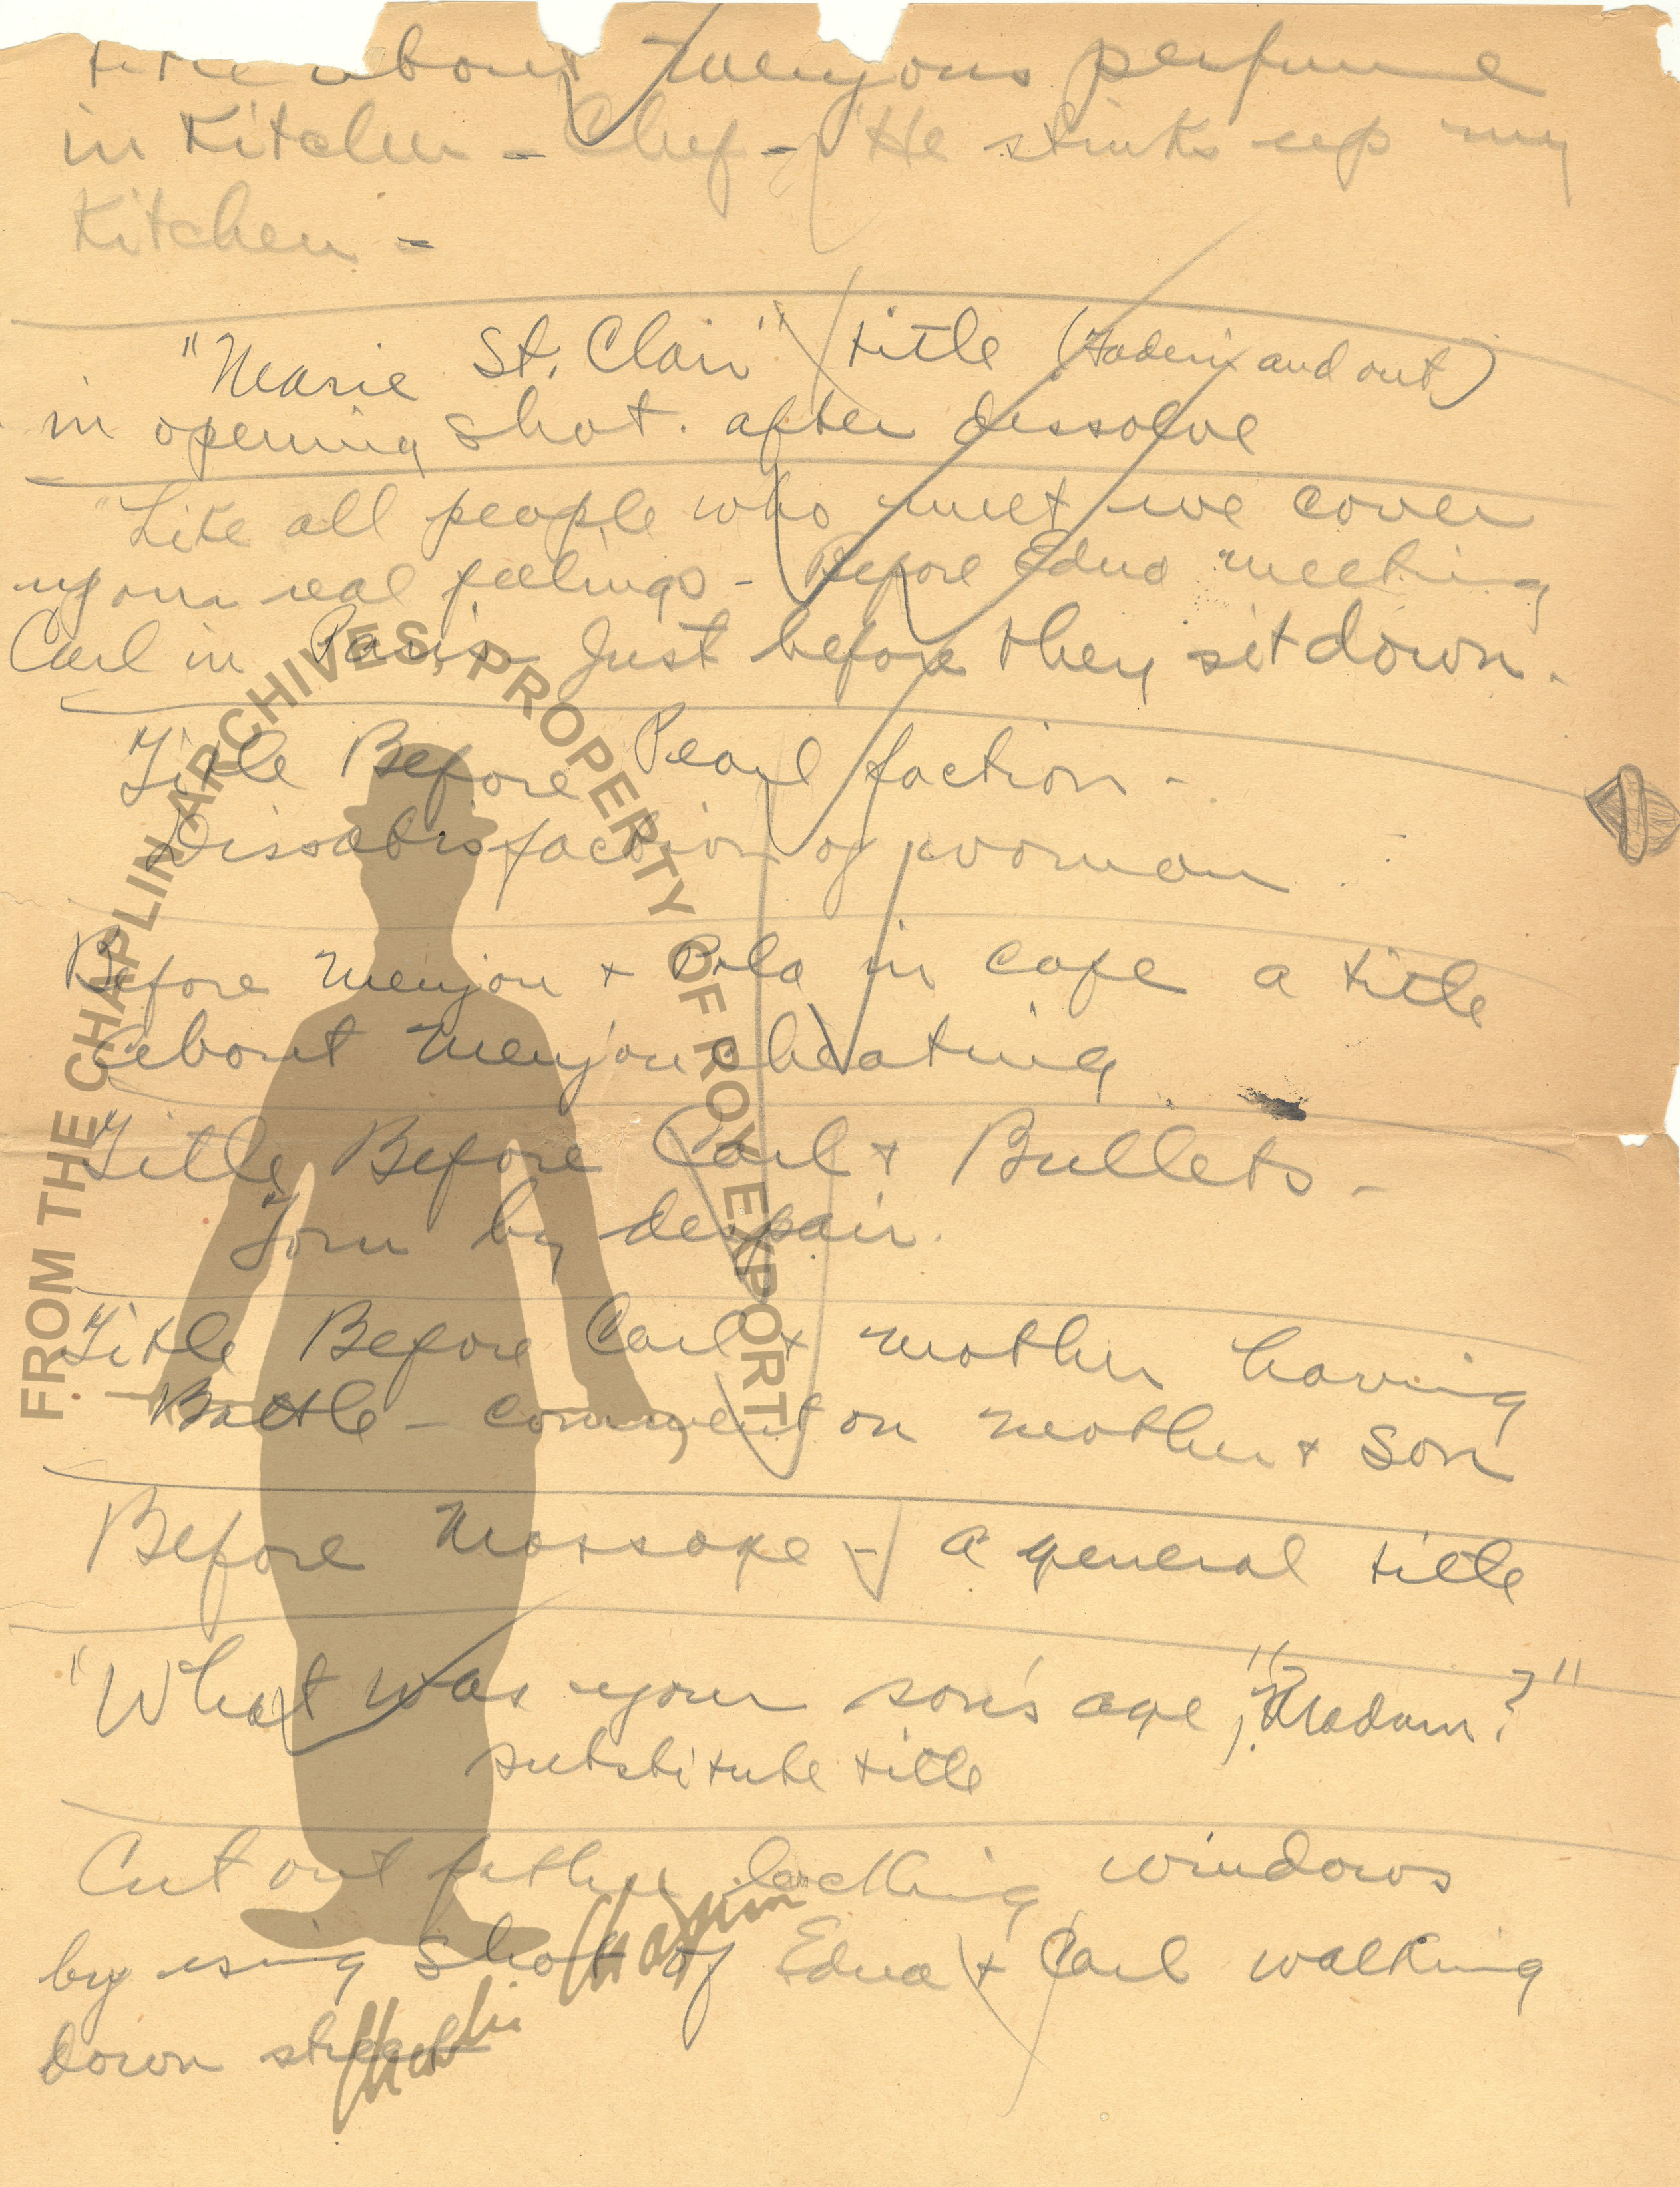 title about Menjous perfume
in Kitchen - Chef - "He stinks up my
Kitchen -
"Marie St. Clair" title (Fadein and out)
in opening shot. after dissolve
"Like all people who meet we cover
up our real feelings - Before Edna meeting
Carl in Paris. Just before they sit down.
Title Before Pearl faction -
Dissatisfaction of woman
Before Menjou + Pola in cafe a title
about Menjou cheating
Title Before Carl + Bullets -
Torn by despair.
Title Before Carl + mother having
Battle - comment on mother + son
Before Massage - a general title
"What was your son's age, Madam?"
substitute title
Cut out father locking windows
by using shot of Edna + Carl walking
down street
FROM THE CHAPLIN ARCHIVES, PROPERTY OF ROY EXPORT
Charlie Chaplin